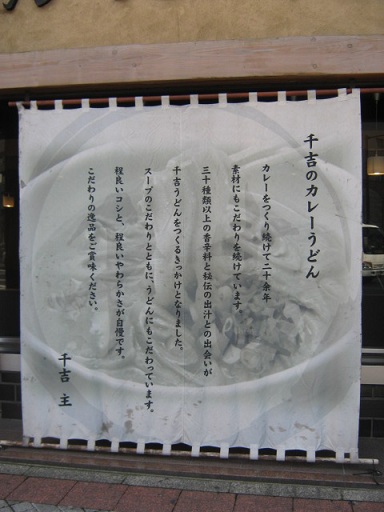 千吉のカレーうどん
カレーをつくり続けて二十余年
素材にもこだわりを続けています。
三十種類以上の香辛料と秘伝の出汁との出会いが
千吉うどんをつくるきっかけとなりました。
スープのこだわりとともに、うどんにもこだわっています。
程良いコシと、程良いやわらかさが自慢です。
こだわりの逸品をご賞味ください。
千吉 主